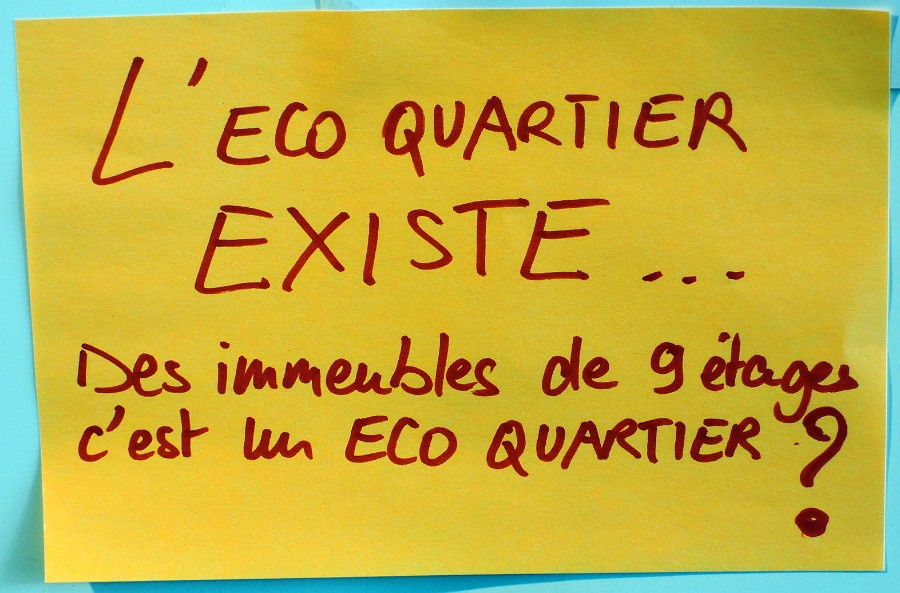 L'ECO QUARTIER
EXISTE ...
Des immeubles de 9 étages
c'est un ECO QUARTIER ?